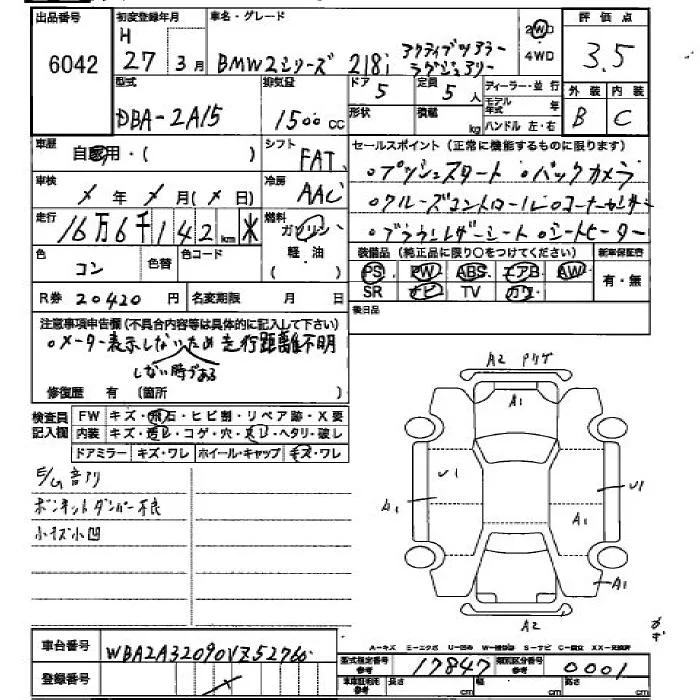 出品番号 初度登録年月 車名・グレード 評価点
6042 H 27年3月 BMW2シリーズ 218i アクティブツアラー 2WD 3.5
ラグジュアリー 4WD
型式 排気量 ドア 5 定員 5人 ディーラー・並行 外装 内装
DBA-2A15 1500cc 形状 積載 kg モデル年式 年 B C
ハンドル 左・右
車歴 自家用・( ) シフト FAT セールスポイント(正常に機能するものに限ります)
。プッシュスタート 。バックカメラ
車検 メ年メ月(メ日) 冷房 AAC
。クルーズコントロール 。コーナーセンサー
走行 16万6千142km 米 燃料 ガソリン・軽・油
。ブラウンレザーシート 。シートヒーター
色 コン 色替 色コード 装備品(純正品に限り○をつけてください) 新車保証書
PS PW ABS エアB AW 有・無
R券 20420円 名変期限 月 日 SR ナビ TV カワ
注意事項申告欄(不具合内容等は具体的に記入して下さい) 後日品
。メーター表示しないため走行距離不明
しない時がある
修復歴 有 (箇所 )
検査員記入欄 FW キズ・飛石・ヒビ割・リペア跡・X要
内装 キズ・汚れ・コゲ・穴・スレ・ヘタリ・破レ
ドアミラー キズ・ワレ ホイール・キャップ キズ・ワレ
E/G音アリ
ボンネットダンパー不良
小キズ小凹
A2 アリゲ
A1
A1 U1 U1 A1
A1
A1
A2
A-キズ E-エクボ U-凹み W-補修跡 S-サビ C-腐食 XX-交換済
車台番号 WBA2A32090VZ52760
型式指定番号 参考 17847 類別区分番号 参考 0001
登録番号 車庫証明用 参考 長さ cm 幅 cm 高さ cm